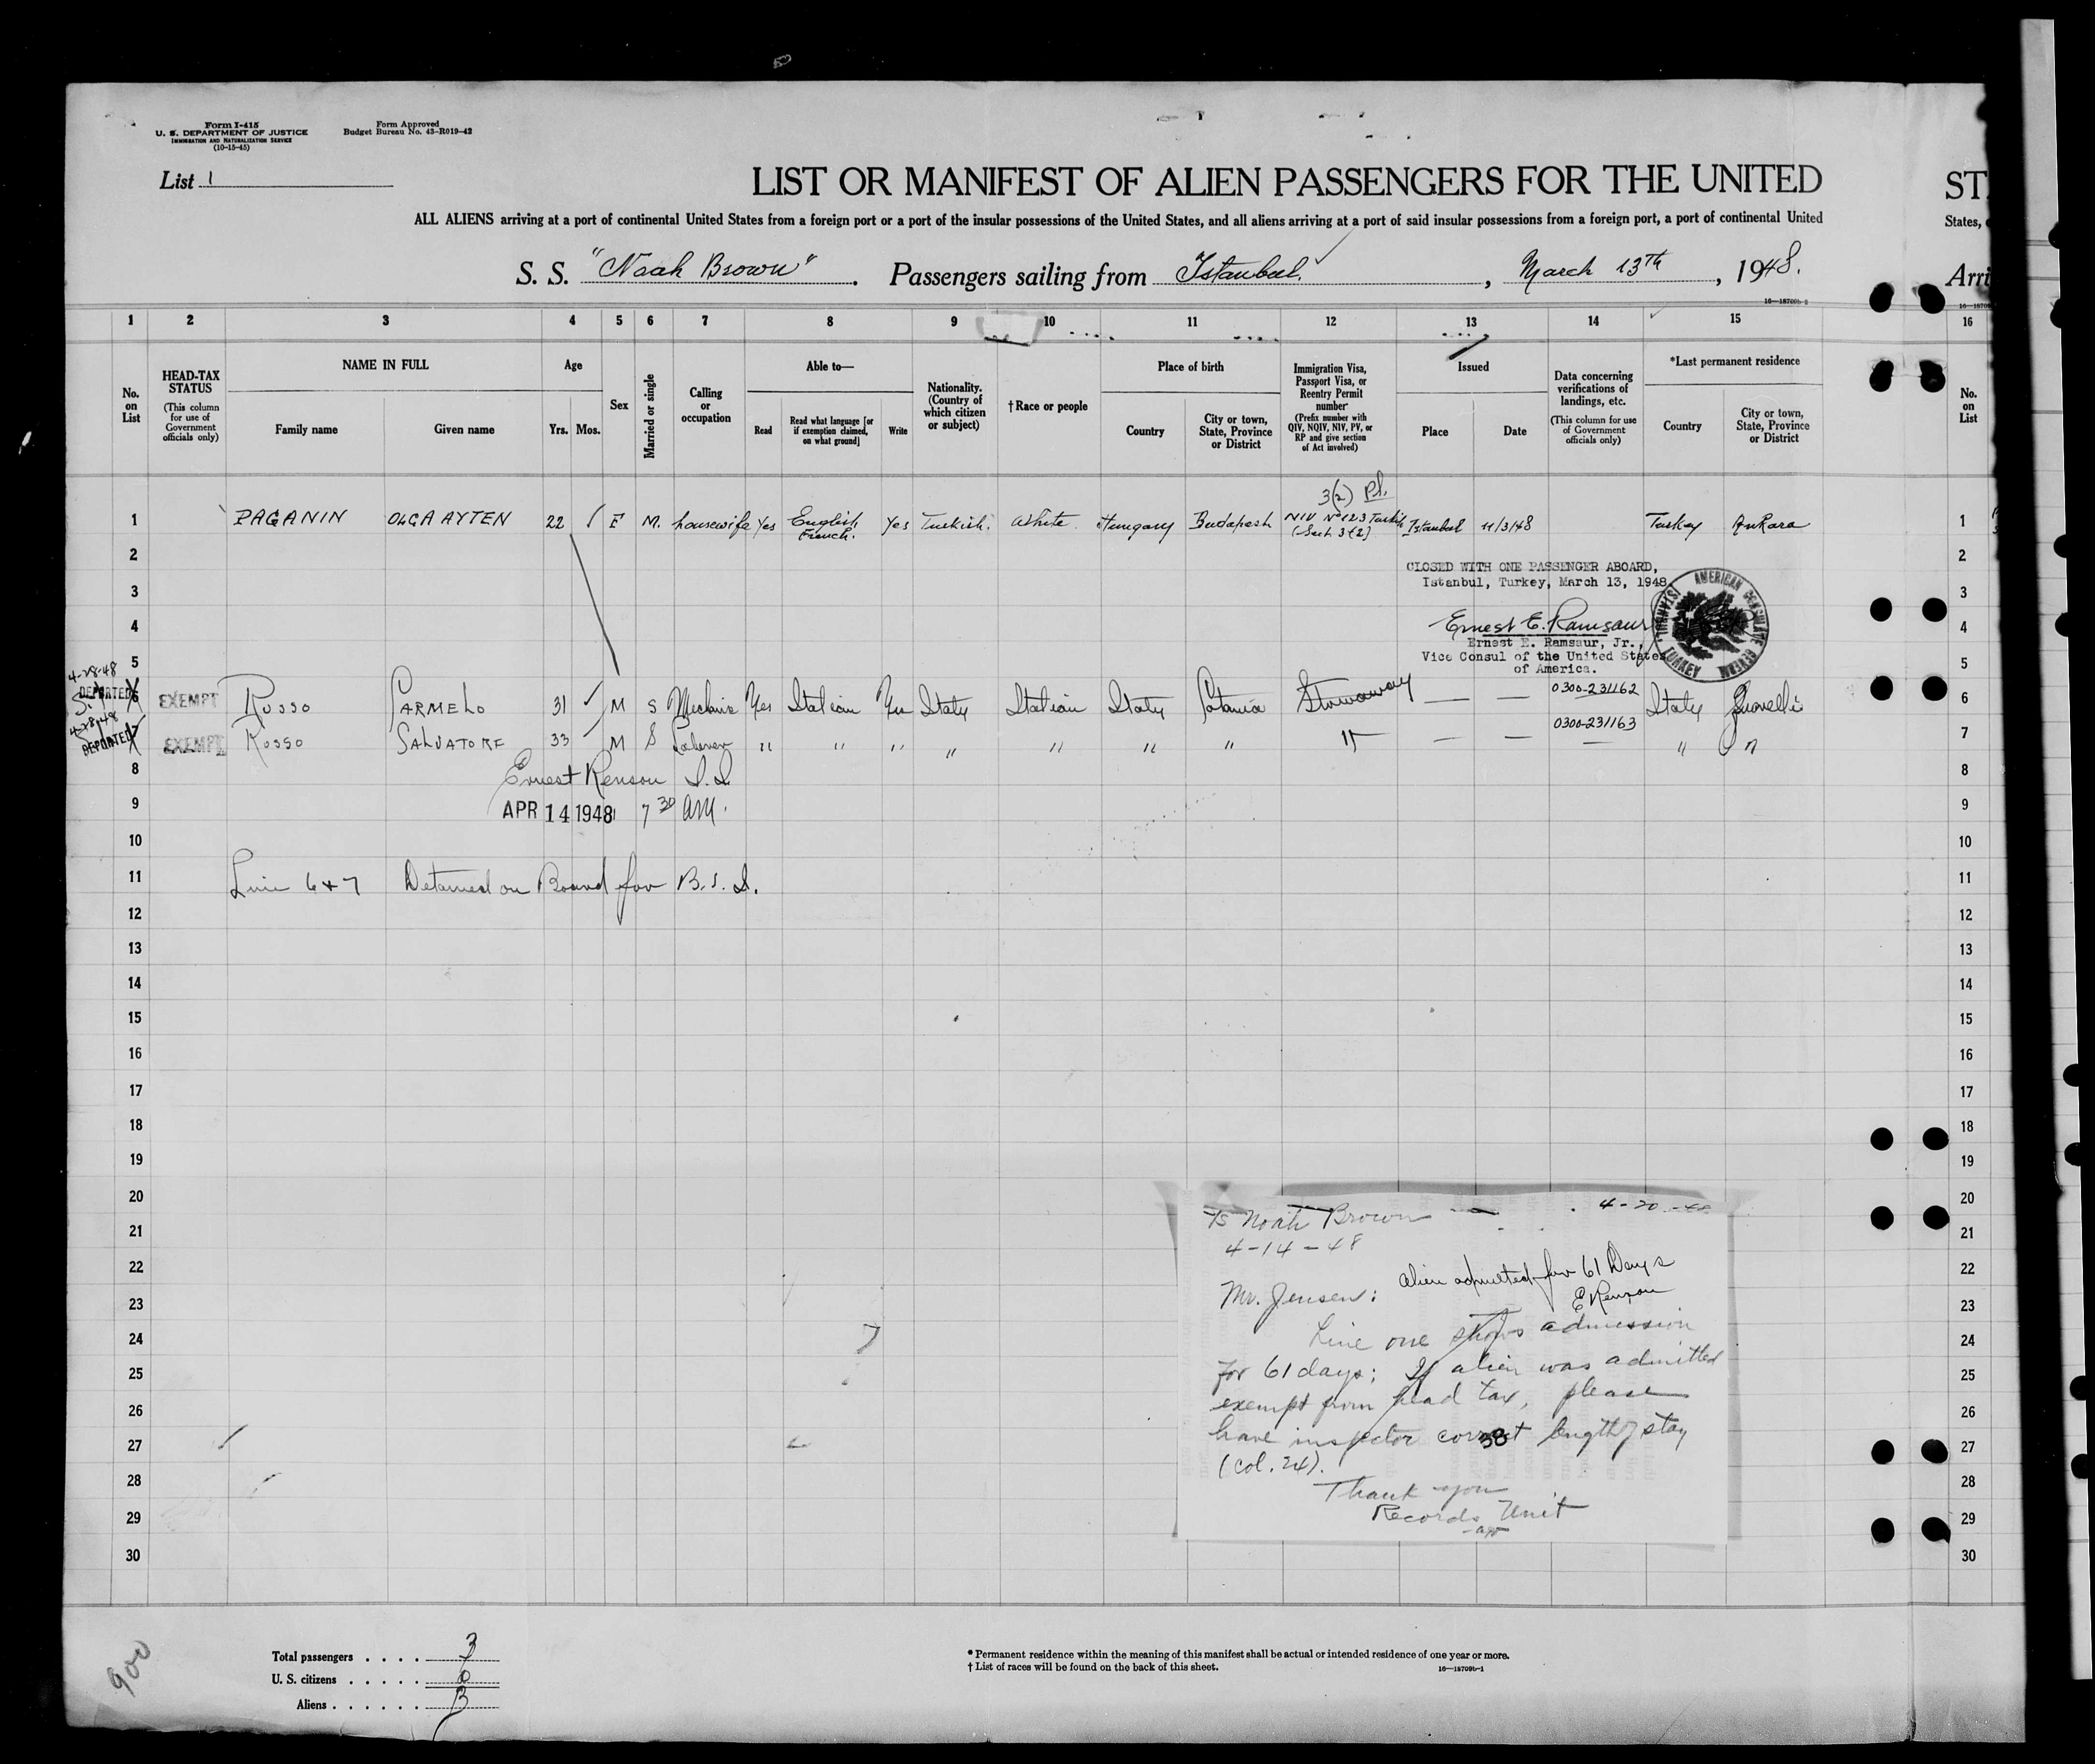 Form I-415
U. S. DEPARTMENT OF JUSTICE
IMMIGRATION AND NATURALIZATION SERVICE
(10-15-45)
Form Approved
Budget Bureau No. 43-R019-42
List 1
LIST OR MANIFEST OF ALIEN PASSENGERS FOR THE UNITED
ST
ALL ALIENS arriving at a port of continental United States from a foreign port or a port of the insular possessions of the United States, and all aliens arriving at a port of said insular possessions from a foreign port, a port of continental United
States,
S. S. "Noah Brown". Passengers sailing from Istanbul, March 13th, 1948.
Arri
16—18709b-2
1 2 3 4 5 6 7 8 9 10 11 12 13 14 15 16
No. on List
HEAD-TAX STATUS
(This column for use of Government officials only)
NAME IN FULL
Family name
Given name
Age
Yrs. Mos.
Sex
Married or single
Calling or occupation
Able to—
Read
Read what language [or if exemption claimed, on what ground]
Write
Nationality. (Country of which citizen or subject)
† Race or people
Place of birth
Country
City or town, State, Province or District
Immigration Visa, Passport Visa, or Reentry Permit number
(Prefix number with QIV, NQIV, NIV, PV, or RP and give section of Act involved)
Issued
Place
Date
Data concerning verifications of landings, etc.
(This column for use of Government officials only)
*Last permanent residence
Country
City or town, State, Province or District
No. on List
3(2) Pl.
1 PAGANIN OLGA AYTEN 22 F M. housewife Yes English French. Yes Turkish. White. Hungary Budapest NIV No 123 Turkish (Sect. 3(2) Istanbul 11/3/48 Turkey Ankara 1
2 2
CLOSED WITH ONE PASSENGER ABOARD,
Istanbul, Turkey, March 13, 1948
3 3
4 4
Ernest E. Ramsaur
Ernest E. Ramsaur, Jr.,
Vice Consul of the United States
of America.
AMERICAN CONSULATE GENERAL ISTANBUL, TURKEY
5 5
4-28-48
DEPORTED
EXEMPT Russo CARMELO 31 M S Mechanic Yes Italian Yes Italy Italian Italy Catania Stowaway — — 0300-231162 Italy 6
4-28-48
DEPORTED
EXEMPT Russo SALVATORE 33 M S Laborer " " " " " " " " — — 0300-231163 — " " 7
8 Ernest Renson I.I. 8
9 APR 14 1948 7 30 AM. 9
10 10
11 Line 6 + 7 Detained on Board for B.S.I. 11
12 12
13 13
14 14
15 15
16 16
17 17
18 18
19 19
20 20
21 21
22 22
23 23
24 24
25 25
26 26
27 27
28 28
29 29
30 30
Noah Brown 4-20-48
4-14-48
Mr. Jensen:
Alien admitted for 61 Days
E Renson
Line one shows admission
for 61 days; If alien was admitted
exempt from head tax, please
have inspector correct length of stay
38
(col. 24).
Thank you
Records Unit
900
Total passengers . . . . 3
U. S. citizens . . . . . 0
Aliens . . . . . . 3
* Permanent residence within the meaning of this manifest shall be actual or intended residence of one year or more.
† List of races will be found on the back of this sheet.
16—18709b-1